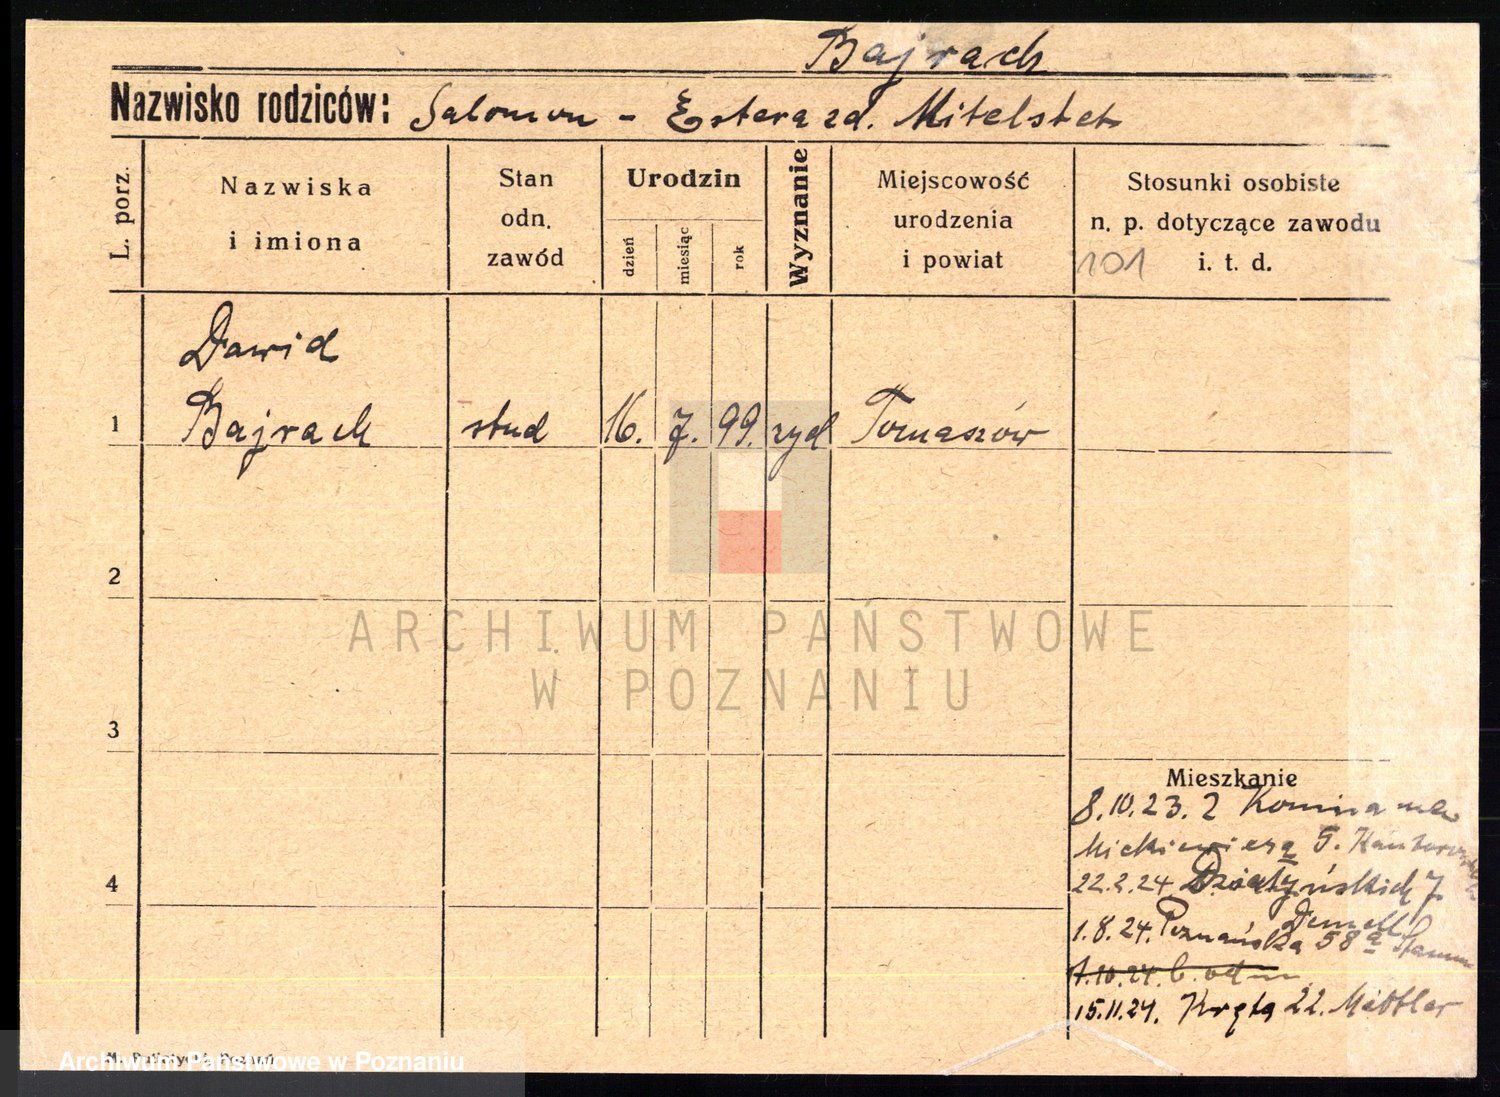 Bajrach
Nazwisko rodziców: Salomon - Estera zd. Mitelstet
L. porz.
Nazwiska
i imiona
Stan
odn.
zawód
Urodzin
dzień
miesiąc
rok
Wyznanie
Miejscowość
urodzenia
i powiat
Stosunki osobiste
n. p. dotyczące zawodu
101 i. t. d.
Dawid
1 Bajrach stud 16. 7. 99. zyd Tomaszów
2
ARCHIWUM PAŃSTWOWE
W POZNANIU
3
Mieszkanie
8.10.23. z Konina
Mickiewicza 5.
4
22.2.24 Działyńskich 7
1.8.24. Poznańska 58a
1.10.24.
15.11.24. Kręta 22.
Archiwum Państwowe w Poznaniu